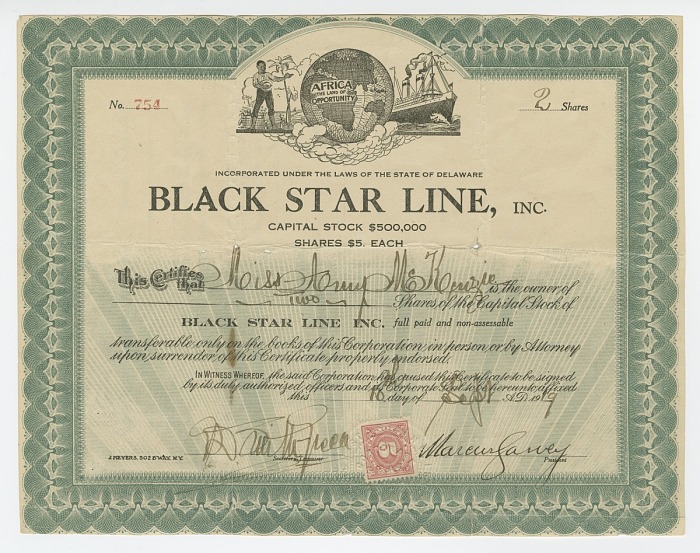 AFRICA
THE LAND OF
OPPORTUNITY
No. 754
2 Shares
INCORPORATED UNDER THE LAWS OF THE STATE OF DELAWARE
BLACK STAR LINE, INC.
CAPITAL STOCK $500,000
SHARES $5. EACH
This Certifies that Miss Amy McKenzie is the owner of
two Shares of the Capital Stock of
BLACK STAR LINE INC. full paid and non-assessable
transferable only on the books of this Corporation in person or by Attorney
upon surrender of this Certificate properly endorsed.
IN WITNESS WHEREOF, the said Corporation has caused this Certificate to be signed
by its duly authorized officers and its Corporate Seal to be hereunto affixed
this day of Sept A.D. 1919
Marcus Garvey
J. MEYERS, 302 B'WAY, N.Y.
President